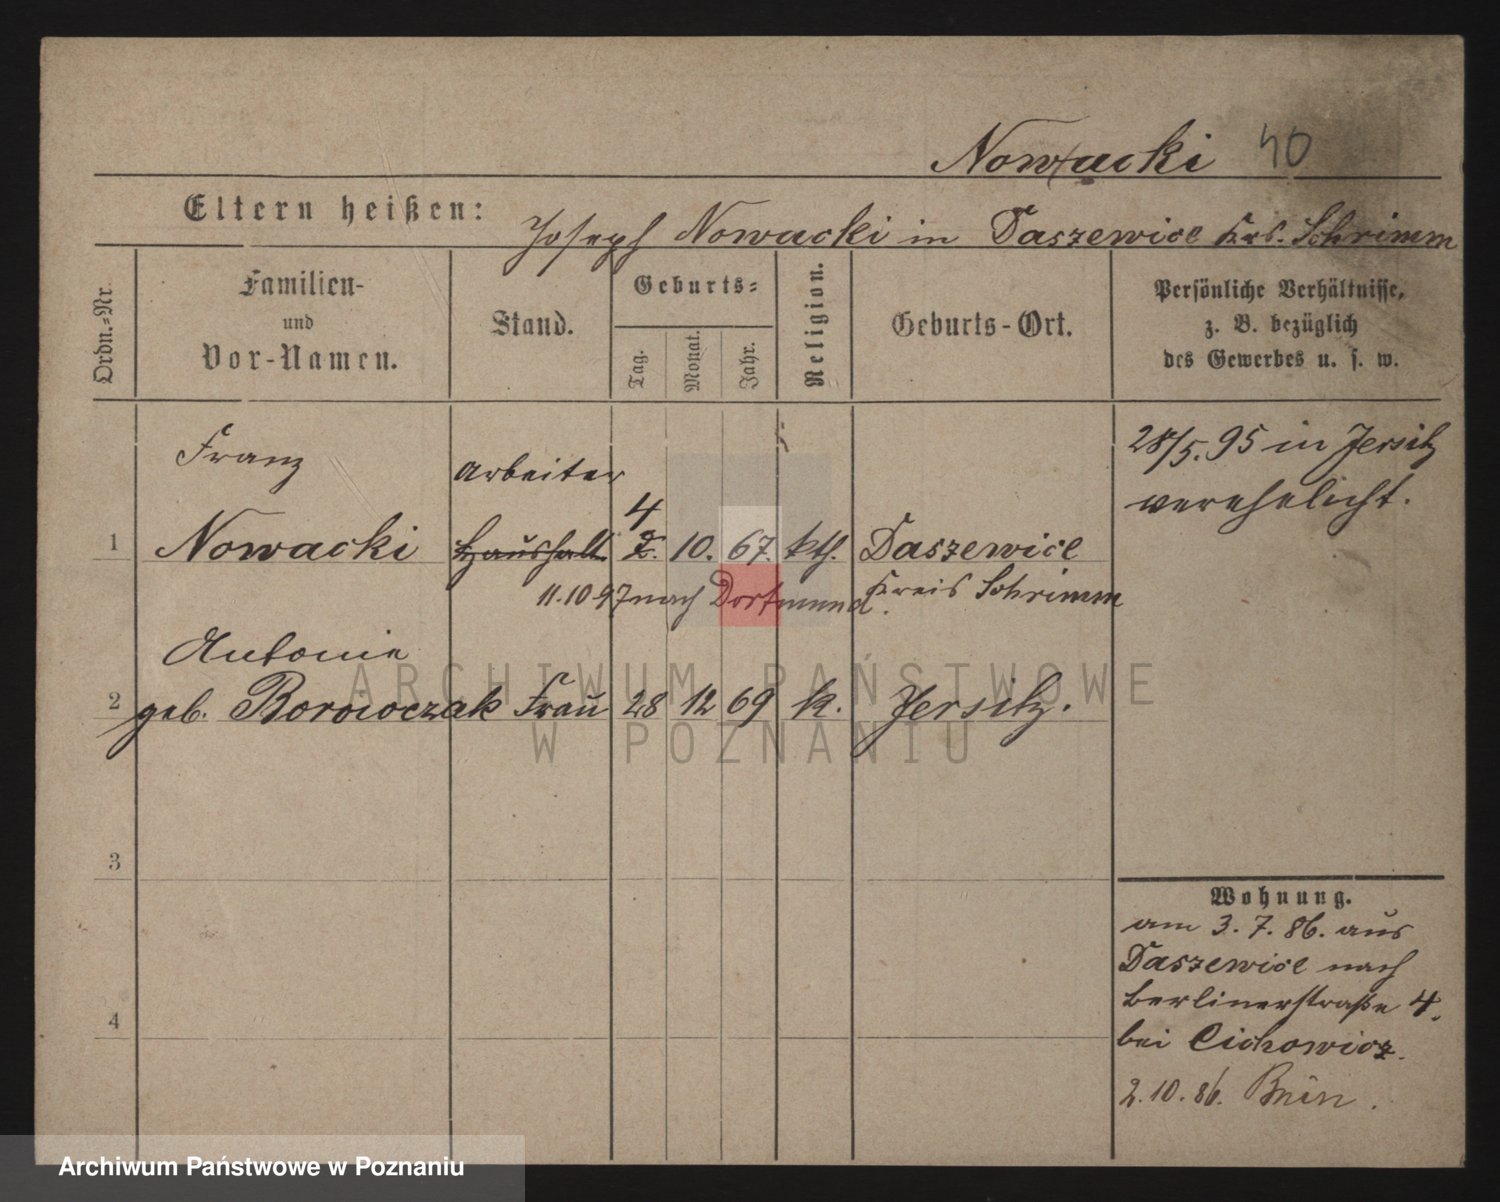 Nowacki 40
Eltern heißen: Joseph Nowacki in Daszewice Krs. Schrimm
Ordn.-Nr.
Familien-
und
Vor-Namen.
Stand.
Geburts-
Tag.
Monat.
Jahr.
Religion.
Geburts-Ort.
Persönliche Verhältnisse,
z. B. bezüglich
des Gewerbes u. s. w.
Franz
Arbeiter
28/5.95 in Jersitz
verehelicht.
4
1 Nowacki Haushält. 2. 10. 67. kth. Daszewice
Kreis Schrimm
11.10.97 nach Dortmund.
Antonie
2 geb. Borowczak Frau 28 12 69 k. Jersitz.
3
4
Wohnung.
am 3. 7. 86. aus
Daszewice nach
Berlinerstraße 4.
bei Cichowicz.
2.10.86.
ARCHIWUM PAŃSTWOWE
W POZNANIU
Archiwum Państwowe w Poznaniu